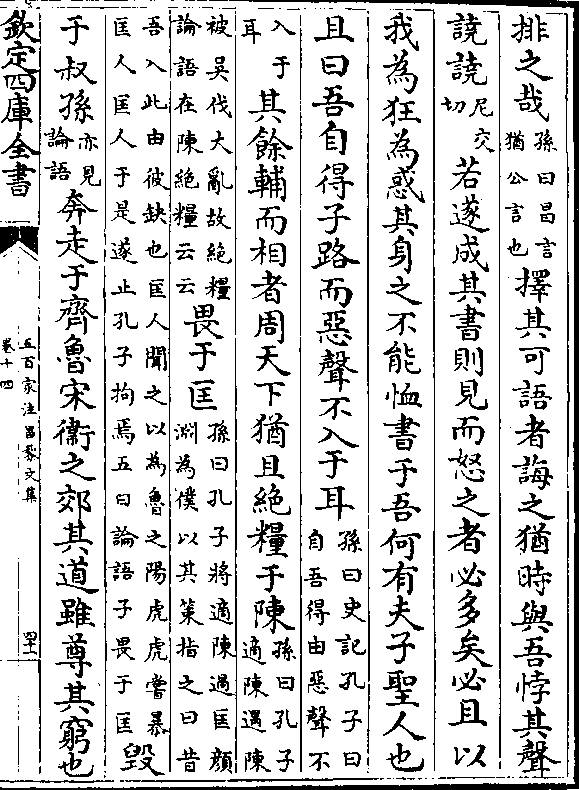 排之哉孫曰昌言猶公言也擇其可語者誨之猶時與吾悖其聲
譊譊尼交切若遂成其書則見而怒之者必多矣必且以
我為狂為惑其身之不能恤書于吾何有夫子聖人也
且曰吾自得子路而惡聲不入于耳孫曰史記孔子曰自吾得由惡聲不
入于耳其餘輔而相者周天下猶且絶糧于陳孫曰孔子適陳遇陳
被吴伐大亂故絶糧論語在陳絶糧云云畏于匡孫曰孔子將適陳過匡顔淵為僕以其策指之曰昔
吾入此由彼缺也匡人聞之以為魯之陽虎虎嘗暴匡人匡人于是遂止孔子拘焉五曰論語子畏于匡毁
于叔孫亦見論語奔走于齊魯宋衞之郊其道雖尊其窮也
欽定四庫全書
五百家注昌黎文集
卷十四